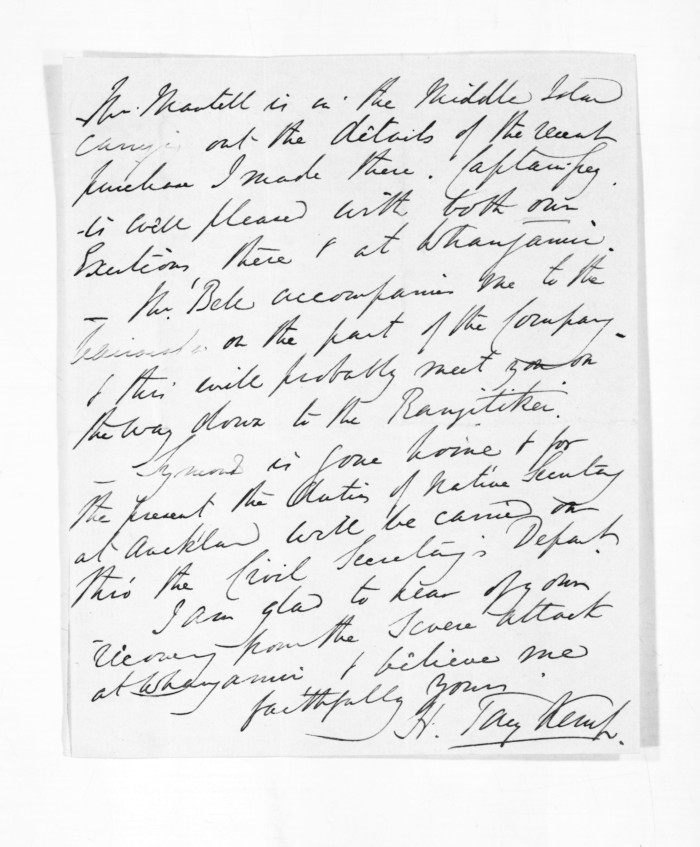 Mr. Mantell is in the Middle Island
carrying out the details of the recent
purchase I made there. Captain Grey
is well pleased with both our
Exertions there & at Whanganui.
– Mr. Bell accompanies me to the
on the part of the Company –
& this will probably meet you on
the way down to the Rangitikei.
– Symonds is gone home & for
the present the duties of Native Secretary
at Auckland will be carried on
thro the Civil Secretary's Depart.
I am glad to hear of your
recovery from the severe attack
at Whanganui & believe me
faithfully yours
H. Tacy Kemp.